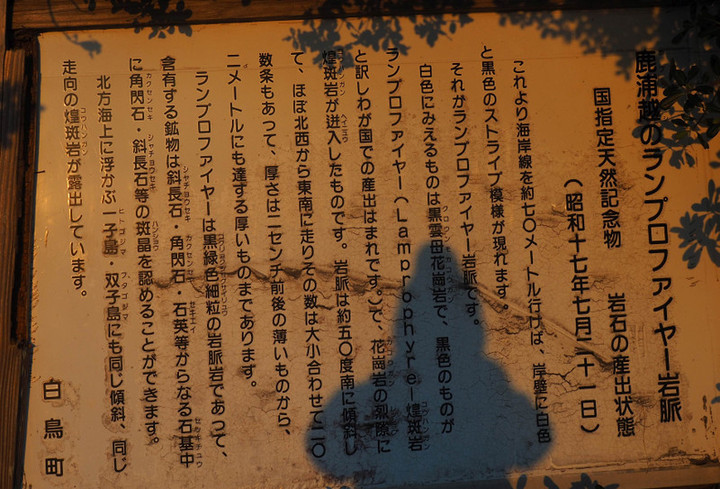 鹿浦越のランプロファイヤー岩脈
国指定天然記念物　岩石の産出状態
（昭和十七年七月二十一日）
これより海岸線を約七〇メートル行けば、岸壁に白色
と黒色のストライプ模様が現れます。
それがランプロファイヤー岩脈です。
白色にみえるものは黒雲母花崗岩で、黒色のものが
ランプロファイヤー（Lamprophyre＝煌斑岩
と訳しわが国での産出はまれです。）で、花崗岩の裂隙に
煌斑岩が迸入したものです。岩脈は約五〇度南に傾斜し
て、ほぼ北西から東南に走りその数は大小合わせて二〇
数条もあって、厚さは二センチ前後の薄いものから、
二メートルにも達する厚いものまであります。
ランプロファイヤーは黒緑色細粒の岩脈岩であって、
含有する鉱物は斜長石・角閃石・石英等からなる石基中
に角閃石・斜長石等の斑晶を認めることができます。
北方海上に浮かぶ一子島・双子島にも同じ傾斜、同じ
走向の煌斑岩が露出しています。
白鳥町